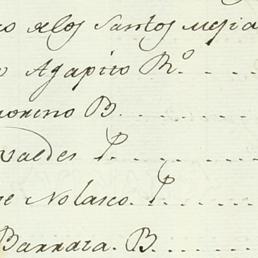 de los Santos Mexia
Agapito R.º - - - -
B. - - - - -
Valdes P. - - - -
Nolasco. P - - -
Barraza. B. - - - -